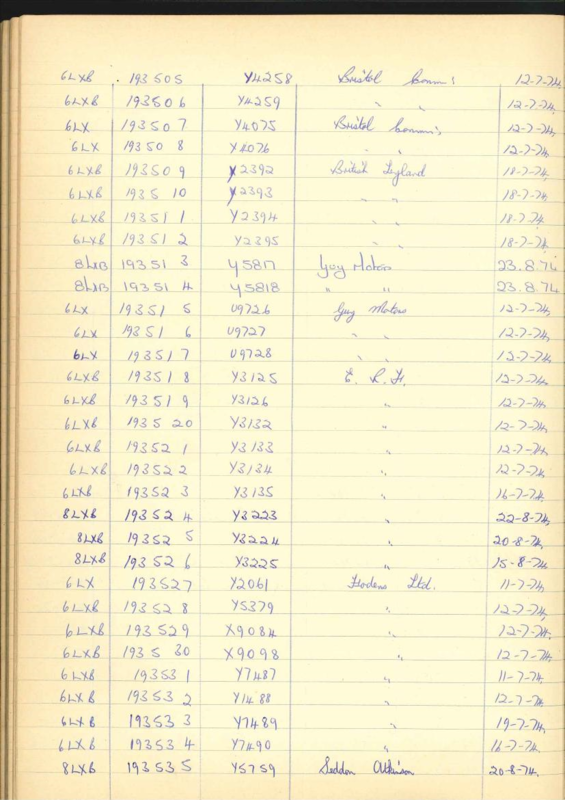 6LXB 193505 Y4258 Bristol Comm's 12-7-74
6LXB 193506 Y4259 " " 12-7-74
6LX 193507 Y4075 Bristol Comm's 12-7-74
6LX 193508 Y4076 " " 12-7-74
6LXB 193509 Y2392 British Leyland 18-7-74
6LXB 193510 Y2393 " " 18-7-74
6LXB 193511 Y2394 " " 18-7-74
6LXB 193512 Y2395 " " 18-7-74
8LXB 193513 Y5817 Guy Motors 23.8.74
8LXB 193514 Y5818 " " 23.8.74
6LX 193515 U9726 Guy Motors 12-7-74
6LX 193516 U9727 " " 12-7-74
6LX 193517 U9728 " " 12-7-74
6LXB 193518 Y3125 E. R. F. 12-7-74
6LXB 193519 Y3126 " 12-7-74
6LXB 193520 Y3132 " 12-7-74
6LXB 193521 Y3133 " 12-7-74
6LXB 193522 Y3134 " 12-7-74
6LXB 193523 Y3135 " 16-7-74
8LXB 193524 Y3223 " 22-8-74
8LXB 193525 Y3224 " 20-8-74
8LXB 193526 Y3225 " 15-8-74
6LX 193527 Y2061 Fodens Ltd. 11-7-74
6LXB 193528 Y5379 " 12-7-74
6LXB 193529 X9084 " 12-7-74
6LXB 193530 X9098 " 12-7-74
6LXB 193531 Y7487 " 11-7-74
6LXB 193532 Y1488 " 12-7-74
6LXB 193533 Y7489 " 19-7-74
6LXB 193534 Y7490 " 16-7-74
8LXB 193535 Y5759 Seddon Atkinson 20-8-74